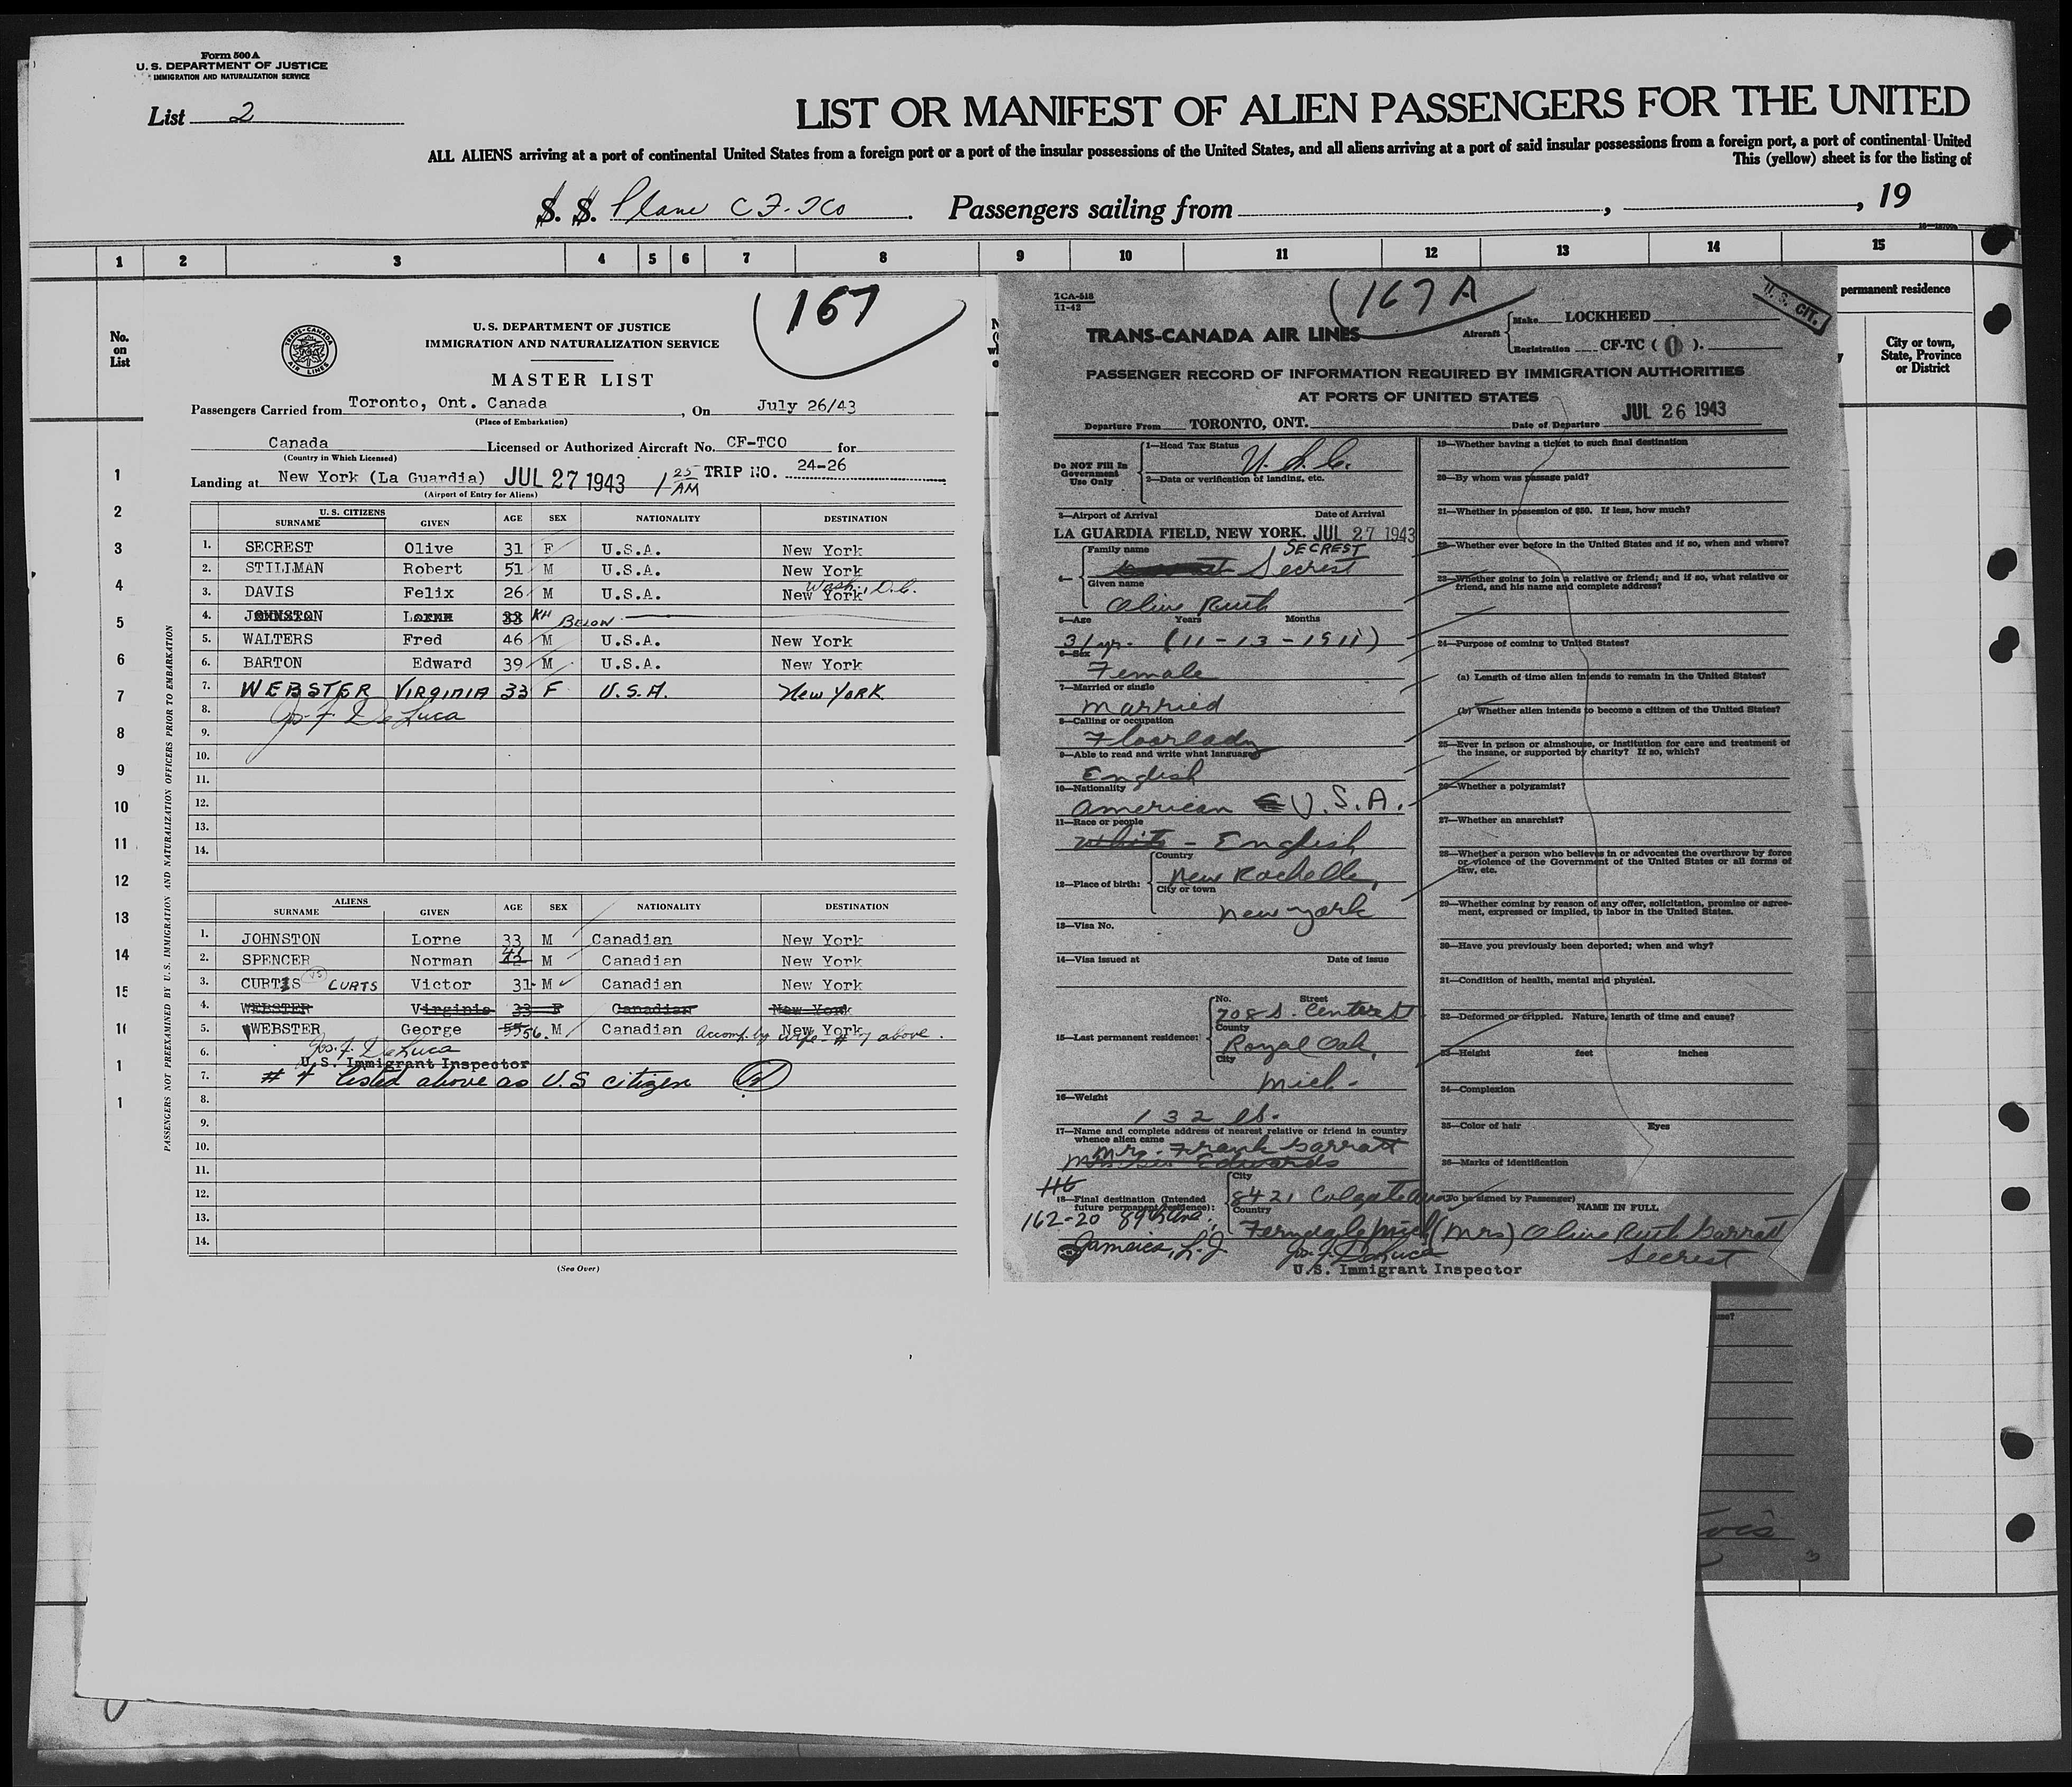 Form 500 A
U. S. DEPARTMENT OF JUSTICE
IMMIGRATION AND NATURALIZATION SERVICE
List 2
LIST OR MANIFEST OF ALIEN PASSENGERS FOR THE UNITED
ALL ALIENS arriving at a port of continental United States from a foreign port or a port of the insular possessions of the United States, and all aliens arriving at a port of said insular possessions from a foreign port, a port of continental United
This (yellow) sheet is for the listing of
S. S. Plane CF-TCO . Passengers sailing from , , 19
1 2 3 4 5 6 7 8 9 10 11 12 13 14 15
No. on List
permanent residence
City or town, State, Province or District
1
2
3
4
5
6
7
8
9
10
11
12
13
14
15
167
TRANS-CANADA AIR LINES
U. S. DEPARTMENT OF JUSTICE
IMMIGRATION AND NATURALIZATION SERVICE
MASTER LIST
Passengers Carried from Toronto, Ont. Canada , On July 26/43
(Place of Embarkation)
Canada Licensed or Authorized Aircraft No. CF-TCO for
(Country in Which Licensed)
Landing at New York (La Guardia) JUL 27 1943 1 25 AM TRIP NO. 24-26
(Airport of Entry for Aliens)
PASSENGERS NOT PREEXAMINED BY U.S. IMMIGRATION AND NATURALIZATION OFFICERS PRIOR TO EMBARKATION
U. S. CITIZENS
SURNAME GIVEN AGE SEX NATIONALITY DESTINATION
1. SECREST Olive 31 F U.S.A. New York
2. STILLMAN Robert 51 M U.S.A. New York
3. DAVIS Felix 26 M U.S.A. New York Wash., D.C.
4. JOHNSTON Lorne 33 KH BELOW
5. WALTERS Fred 46 M U.S.A. New York
6. BARTON Edward 39 M U.S.A. New York
7. WEBSTER VIRGINIA 33 F U.S.A. New YORK
8. Jos. F. DeLuca
9.
10.
11.
12.
13.
14.
ALIENS
SURNAME GIVEN AGE SEX NATIONALITY DESTINATION
1. JOHNSTON Lorne 33 M Canadian New York
2. SPENCER Norman 42 M Canadian New York
3. CURTIS CURTS Victor 31 M Canadian New York
4. WEBSTER Virginia 33 F Canadian New York
5. WEBSTER George 55 56. M Canadian New York Accomp. by wife - #7 above.
6. Jos. F. DeLuca
U.S. Immigrant Inspector
7. # 4 listed above as U.S citizen
8.
9.
10.
11.
12.
13.
14.
(See Over)
TCA-518
11-42
167 A
U. S. CIT.
TRANS-CANADA AIR LINES
Aircraft Make LOCKHEED
Registration CF-TC ( O ).
PASSENGER RECORD OF INFORMATION REQUIRED BY IMMIGRATION AUTHORITIES
AT PORTS OF UNITED STATES
Departure From TORONTO, ONT. Date of Departure JUL 26 1943
Do NOT Fill In Government Use Only
1—Head Tax Status U.S.C.
2—Data or verification of landing, etc.
3—Airport of Arrival Date of Arrival
LA GUARDIA FIELD, NEW YORK. JUL 27 1943
4— Family name SECREST
Secrest
Given name
Olive Ruth
5—Age Years Months
31 yr. (11-13-1911)
6—Sex
Female
7—Married or single
Married
8—Calling or occupation
Floorlady
9—Able to read and write what language
English
10—Nationality
American U.S.A.
11—Race or people
White - English
12—Place of birth: Country
New Rochelle,
City or town
New York
13—Visa No.
14—Visa issued at Date of issue
15—Last permanent residence: No. Street
708 S. Center St.
County
Royal Oak,
City
Mich.
16—Weight
132 lb.
17—Name and complete address of nearest relative or friend in country whence alien came
Mrs. Frank Garratt
Edwards
18—Final destination (Intended future permanent residence): City
8421 Colgate Ave
Country
Ferndale Mich
162-20 89th Ave.,
Jamaica, L.I.
Jos. F. DeLuca
U.S. Immigrant Inspector
19—Whether having a ticket to such final destination
20—By whom was passage paid?
21—Whether in possession of $50. If less, how much?
22—Whether ever before in the United States and if so, when and where?
23—Whether going to join a relative or friend; and if so, what relative or friend, and his name and complete address?
24—Purpose of coming to United States?
(a) Length of time alien intends to remain in the United States?
(b) Whether alien intends to become a citizen of the United States?
25—Ever in prison or almshouse, or institution for care and treatment of the insane, or supported by charity? If so, which?
26—Whether a polygamist?
27—Whether an anarchist?
28—Whether a person who believes in or advocates the overthrow by force or violence of the Government of the United States or all forms of law, etc.
29—Whether coming by reason of any offer, solicitation, promise or agreement, expressed or implied, to labor in the United States.
30—Have you previously been deported; when and why?
31—Condition of health, mental and physical.
32—Deformed or crippled. Nature, length of time and cause?
33—Height feet inches
34—Complexion
35—Color of hair Eyes
36—Marks of identification
(To be signed by Passenger)
NAME IN FULL
(Mrs) Olive Ruth Garratt
Secrest